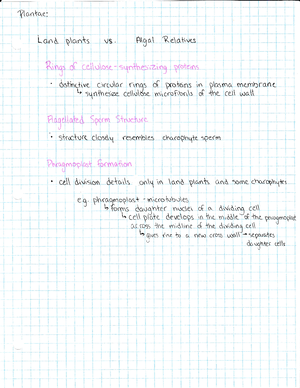 Plantae:
Land plants vs. Algal Relatives
Rings of cellulose-synthesizing proteins
• distinctive circular rings of proteins in plasma membrane
↳ synthesize cellulose microfibrils of the cell wall
Flagellated Sperm Structure
• structure closely resembles charophyte sperm
Phragmoplast Formation
• cell division details only in land plants and some charophytes
eg. phragmoplast - microtubules
↳ forms daughter nuclei of a dividing cell
↳ cell plate develops in the middle of the phragmoplast
across the midline of the dividing cell
↳ gives rise to a new cross wall → separates
daughter cells